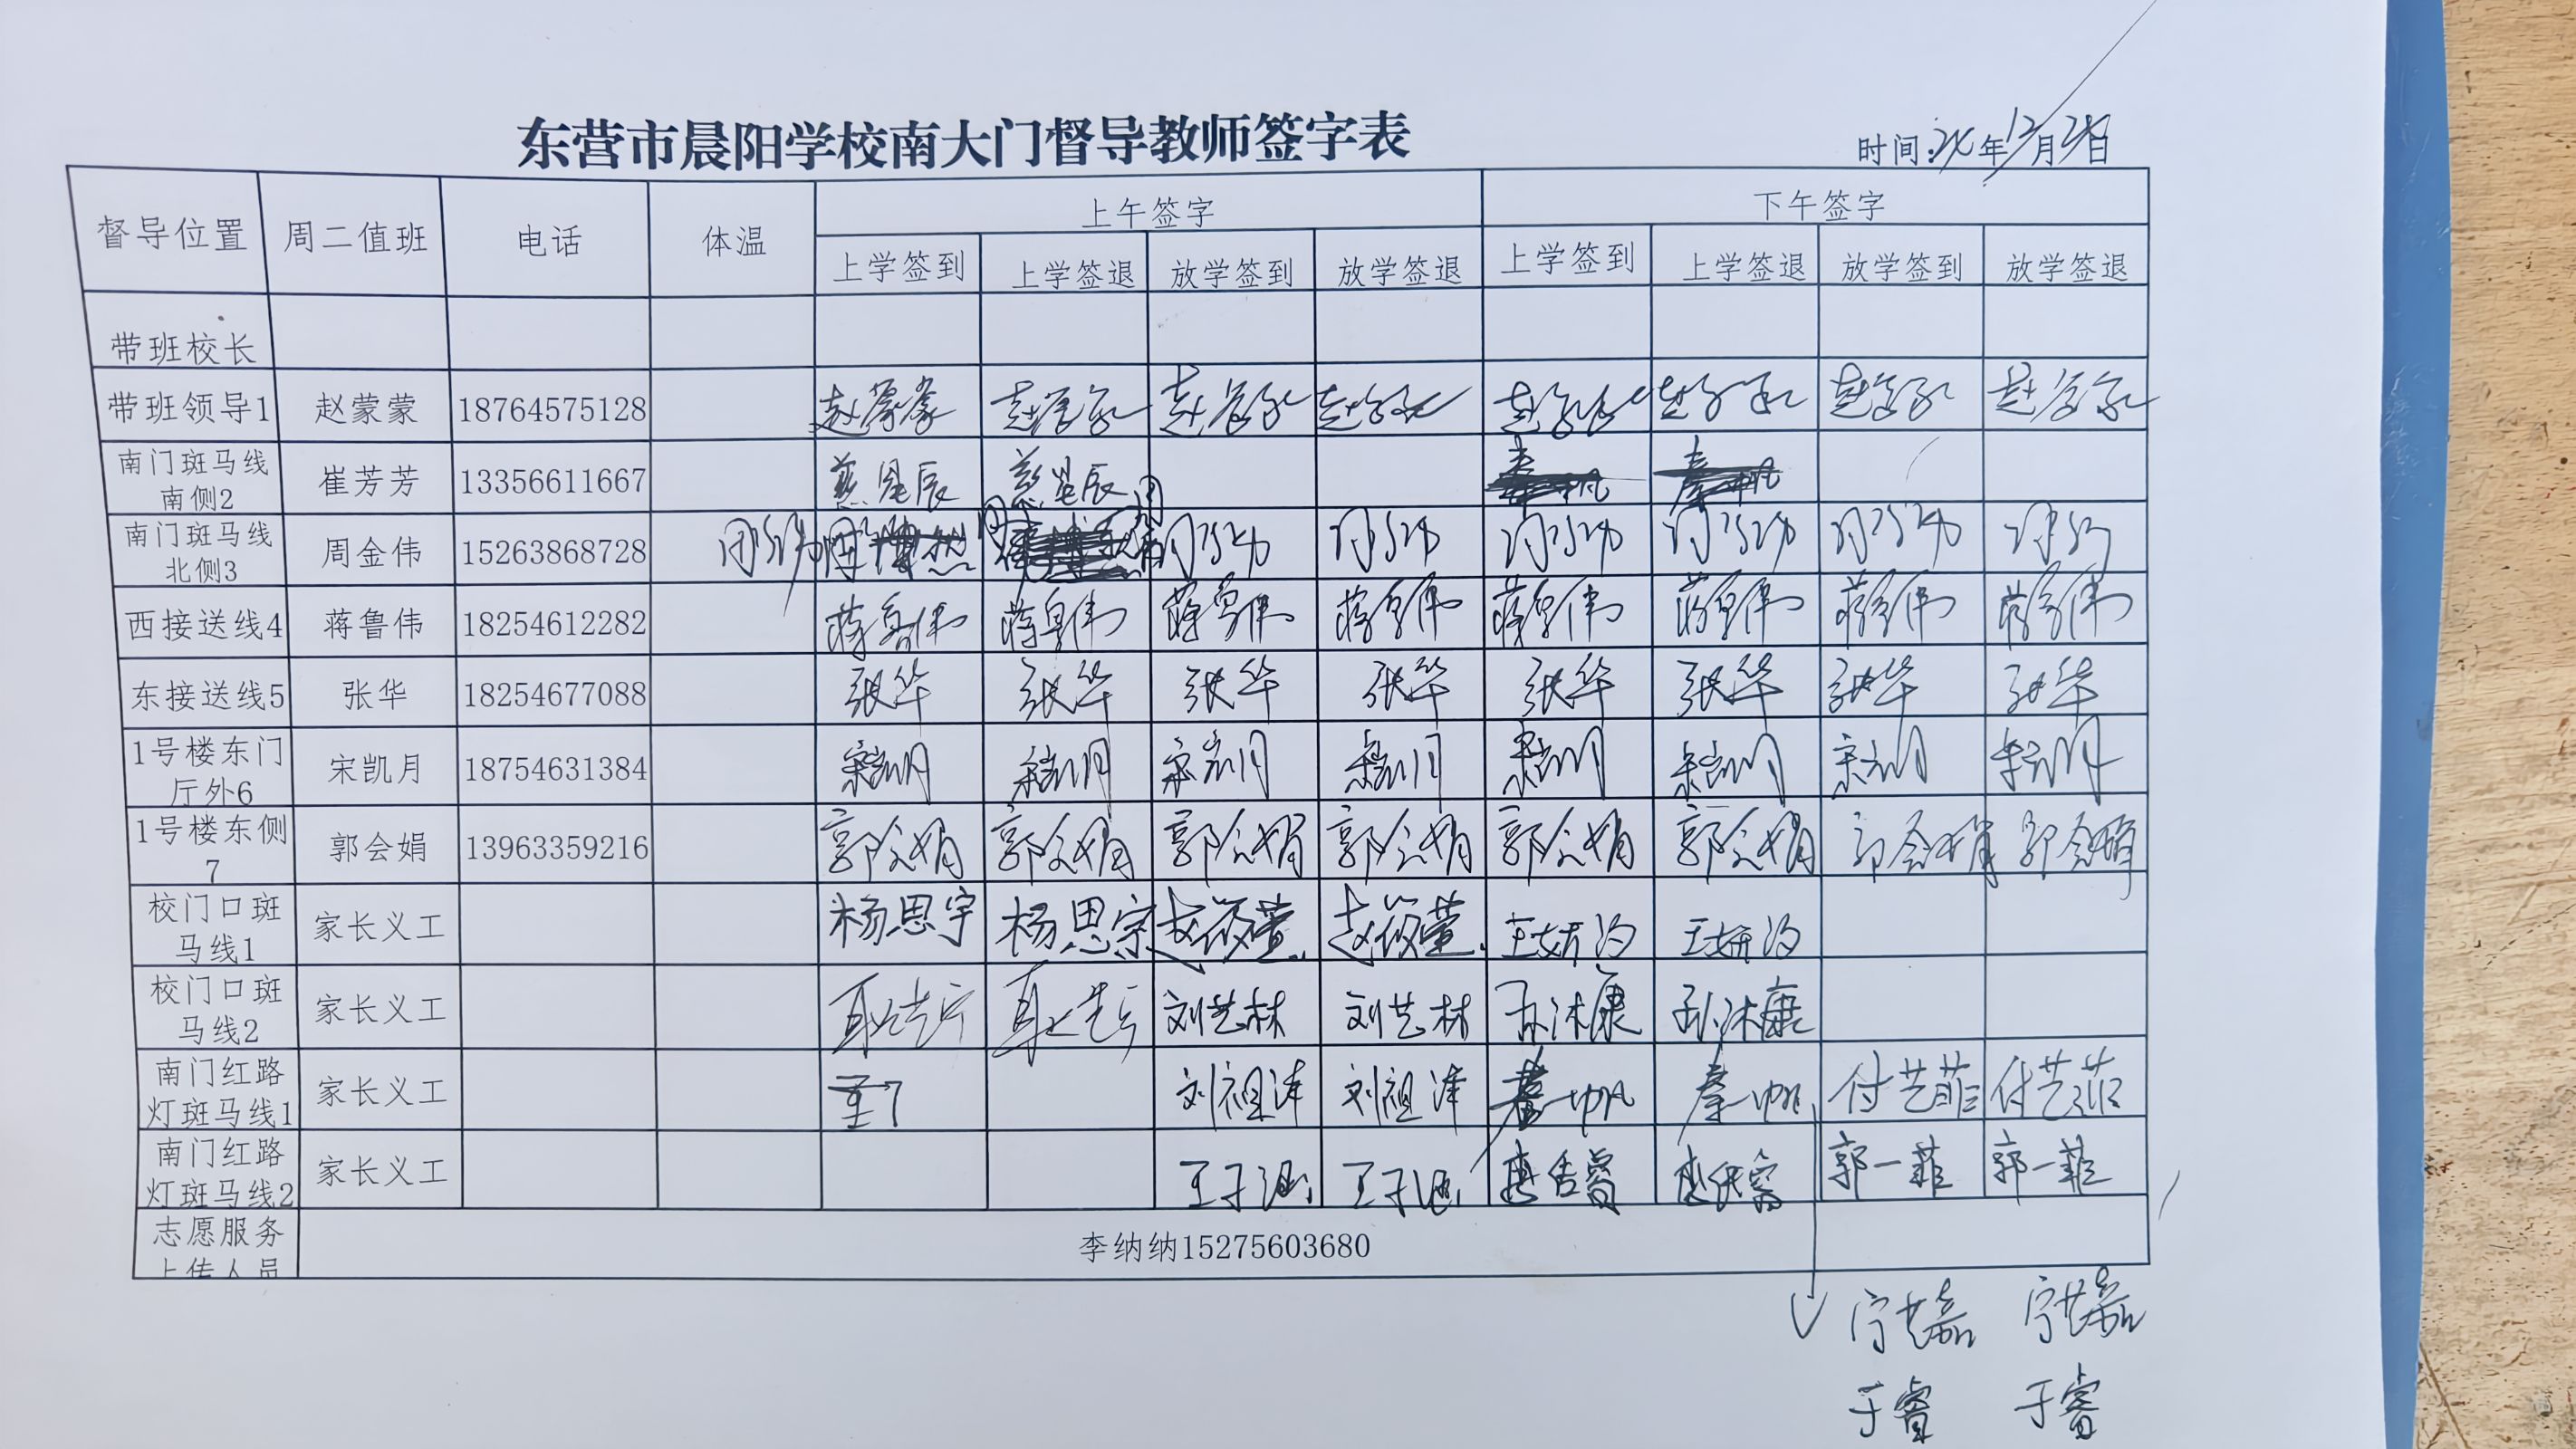 东营市晨阳学校南大门督导教师签字表
时间: 年12月 日
督导位置 周二值班 电话 体温 上午签字 下午签字
上学签到 上学签退 放学签到 放学签退 上学签到 上学签退 放学签到 放学签退
带班校长
带班领导1 赵蒙蒙 18764575128 赵蒙蒙 赵蒙蒙 赵蒙蒙 赵蒙蒙 赵蒙蒙 赵蒙蒙 赵蒙蒙 赵蒙蒙
南门斑马线
南侧2 崔芳芳 13356611667 綦星辰 綦星辰
南门斑马线
北侧3 周金伟 15263868728
西接送线4 蒋鲁伟 18254612282 蒋鲁伟 蒋鲁伟 蒋鲁伟 蒋鲁伟 蒋鲁伟 蒋鲁伟 蒋鲁伟 蒋鲁伟
东接送线5 张华 18254677088 张华 张华 张华 张华 张华 张华 张华 张华
1号楼东门
厅外6 宋凯月 18754631384 宋凯月 宋凯月 宋凯月 宋凯月 宋凯月 宋凯月 宋凯月 宋凯月
1号楼东侧
7 郭会娟 13963359216 郭会娟 郭会娟 郭会娟 郭会娟 郭会娟 郭会娟 郭会娟 郭会娟
校门口斑
马线1 家长义工 杨思宇 杨思宇 赵筱萱 赵筱萱 王妍 王妍
校门口斑
马线2 家长义工 刘艺林 刘艺林 孙沐康 孙沐康
南门红路
灯斑马线1 家长义工 刘祖泽 刘祖泽 秦一帆 秦一帆 付艺菲 付艺菲
南门红路
灯斑马线2 家长义工 王子涵 王子涵 郭一菲 郭一菲
志愿服务
上传人员 李纳纳15275603680
宁艺磊 宁艺磊
于睿 于睿